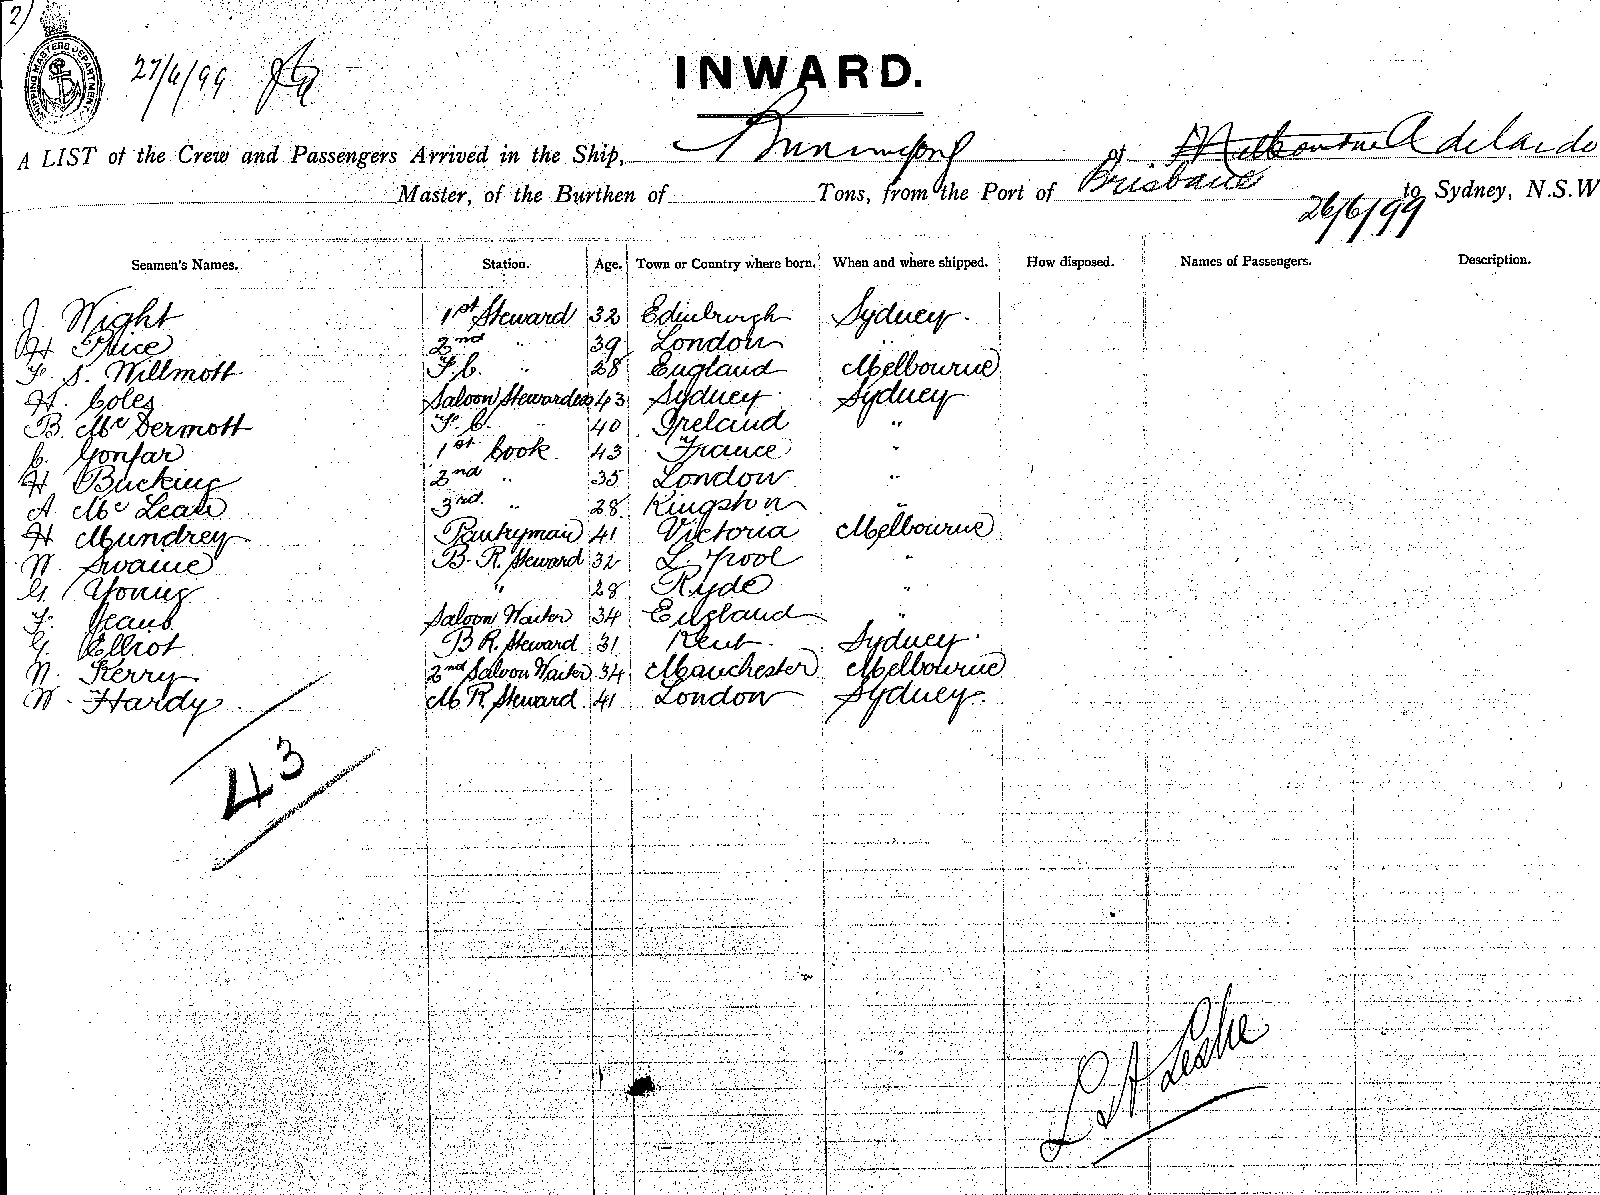 2)
SHIPPING MASTERS DEPARTMENT
27/6/99
INWARD.
A LIST of the Crew and Passengers Arrived in the Ship, Buninyong of Melbourne Adelaide
Master, of the Burthen of Tons, from the Port of Brisbane to Sydney, N.S.W
26/6/99
Seamen's Names. Station. Age. Town or Country where born. When and where shipped. How disposed. Names of Passengers. Description.
J. Wight 1st Steward 32 Edinburgh Sydney.
H Price 2nd " 39 London
F. S. Willmott F.C. " 28 England Melbourne
H. Coles Saloon Stewardess 43 Sydney Sydney
B. Mc Dermott F. C. " 40 Ireland "
C. Gonfar 1st Cook 43 France "
H Bucking 2nd " 35 London "
A. Mc Lean 3rd. " 28 Kingston "
H Mundrey Pantryman 41 Victoria Melbourne
W. Swaine B. R. Steward 32 L'pool "
G. Young " 28 Ryde "
F. Jeans Saloon Waiter 34 England "
G. Elliot B R. Steward 31 Kent Sydney.
N. Kerry 2nd Saloon Waiter 34 Manchester Melbourne
W. Hardy M R. Steward 41 London Sydney.
43
L A Leslie